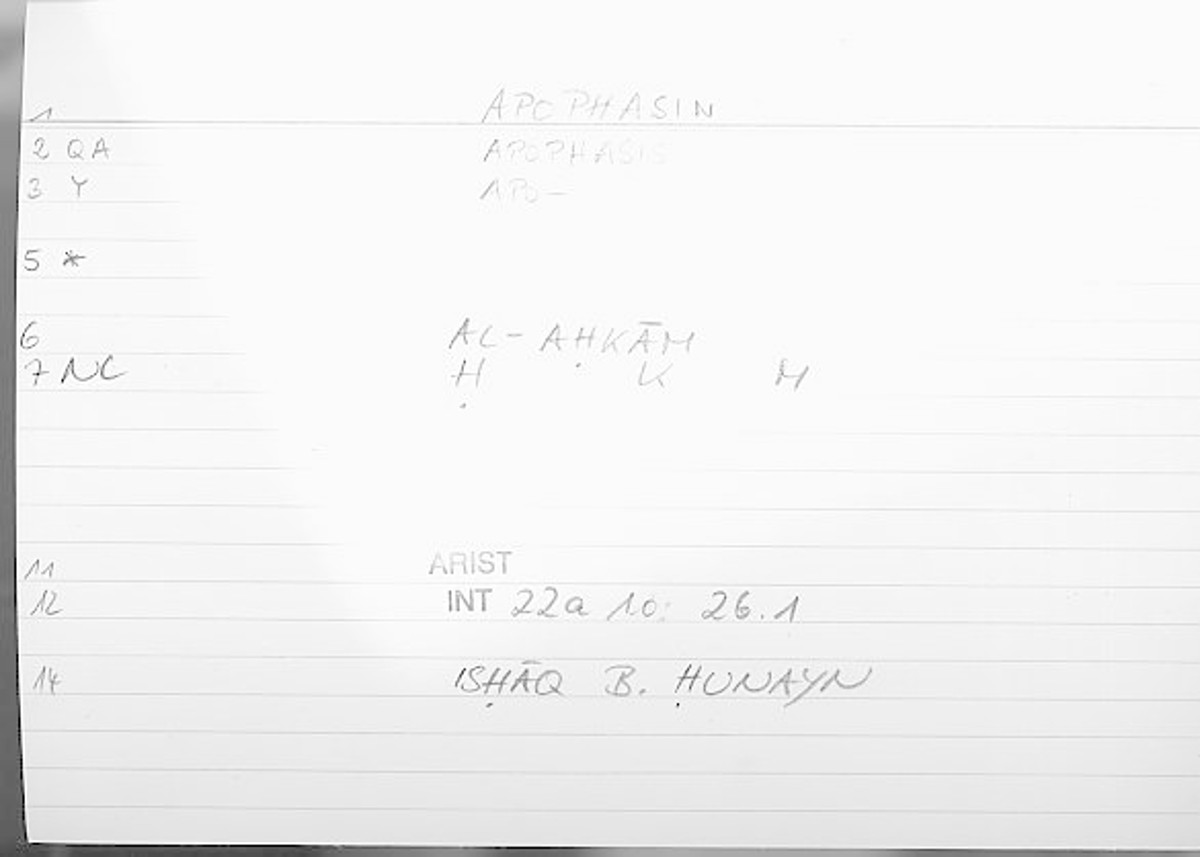 1 APOPHASIN
2 QA APOPHASIS
3 Y APO-
5 *
6 AL- AḤKĀM
7 NC Ḥ K M
11 ARIST
12 INT 22a 10: 26.1
14 ISḤĀQ B. ḤUNAYN